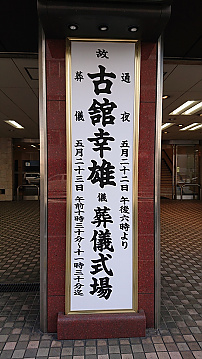 故 古舘幸雄 儀 葬儀式場
通夜 五月二十二日 午後六時より
葬儀 五月二十三日 午前十時三十分~十一時三十分迄